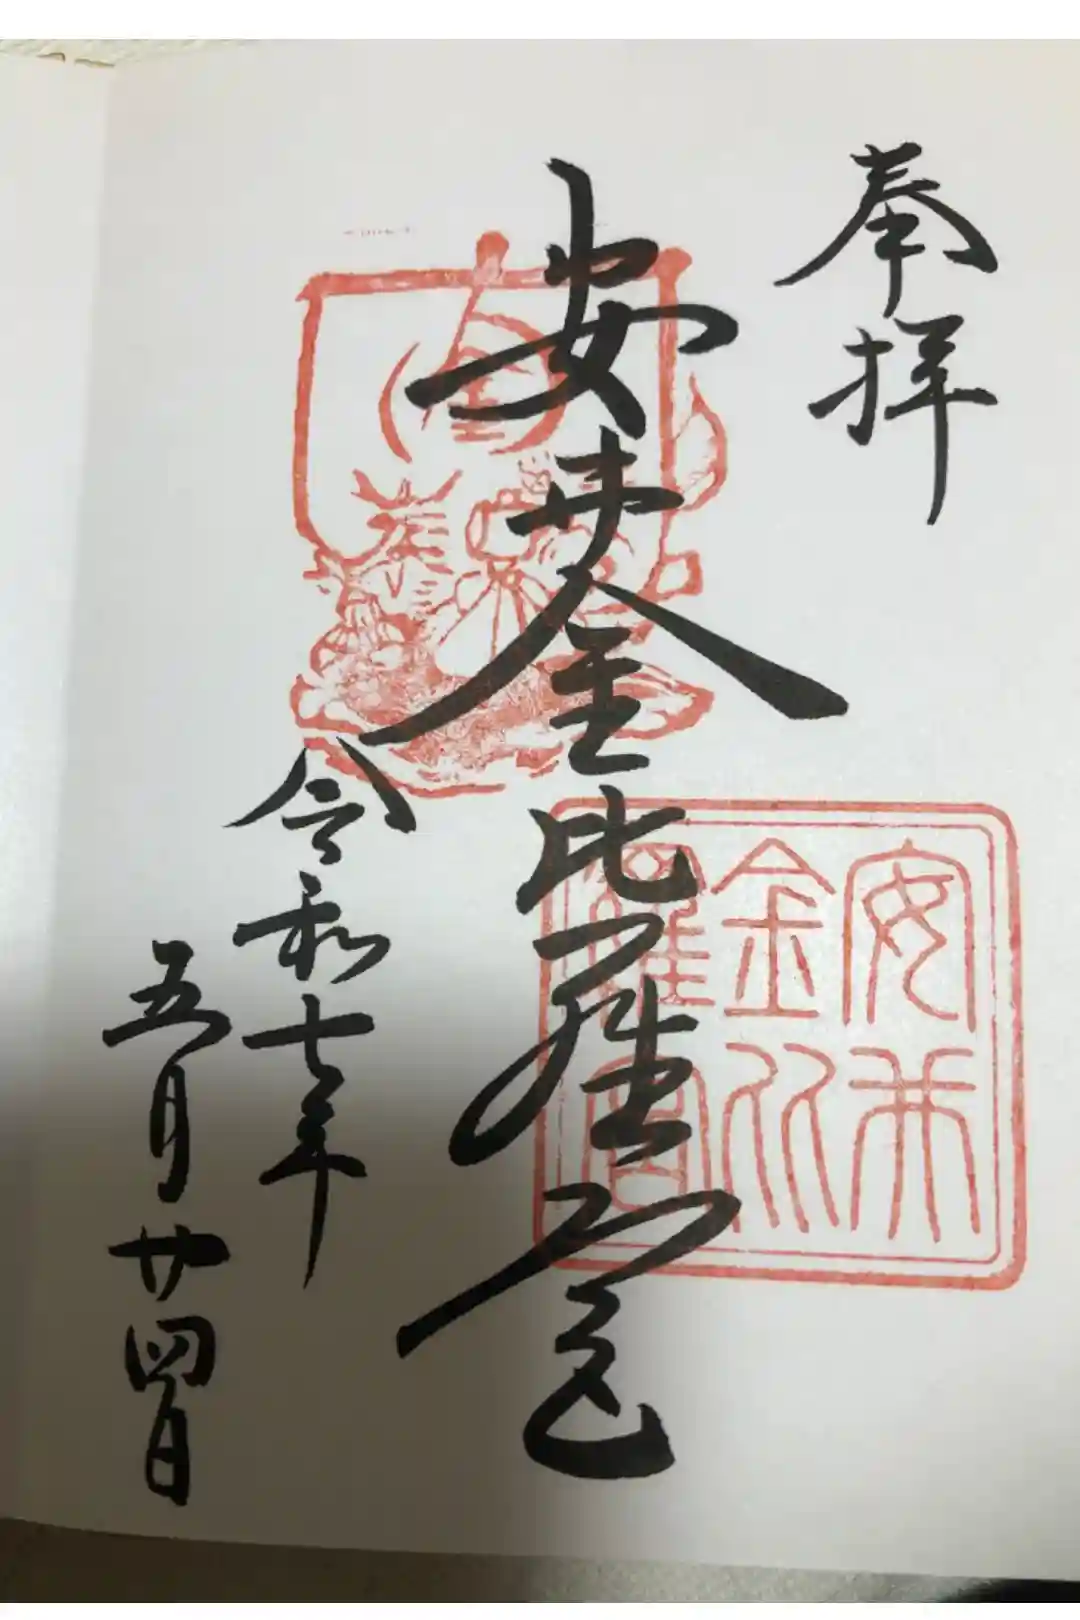 奉拝
安井金比羅宮
令和七年
五月廿四日
安井
金比
羅宮
金